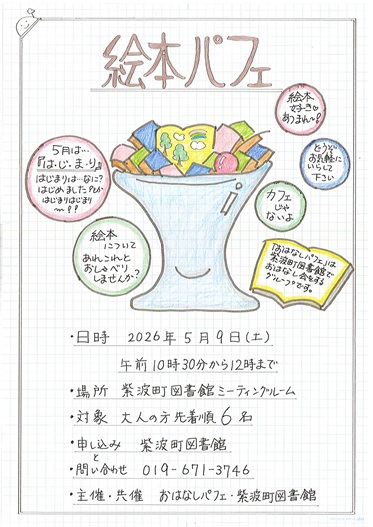 絵本パフェ
絵本
好き
あつまれ~!
5月は…
『は・じ・ま・り』
はじまりは…なに?
はじめました?とか
はじまりはじまり
~!!
どうぞ
お気軽に
いらして
下さい
カフェ
じゃ
ないよ
絵本
について
あれこれと
おしゃべり
しませんか?
「おはなしパフェ」は
紫波町図書館で
おはなし会をする
グループです。
・日時 2026年5月9日(土)
午前10時30分から12時まで
・場所 紫波町図書館ミーティングルーム
・対象 大人の方先着順6名
・申し込み 紫波町図書館
と
・問い合わせ 019-671-3746
・主催・共催 おはなしパフェ・紫波町図書館